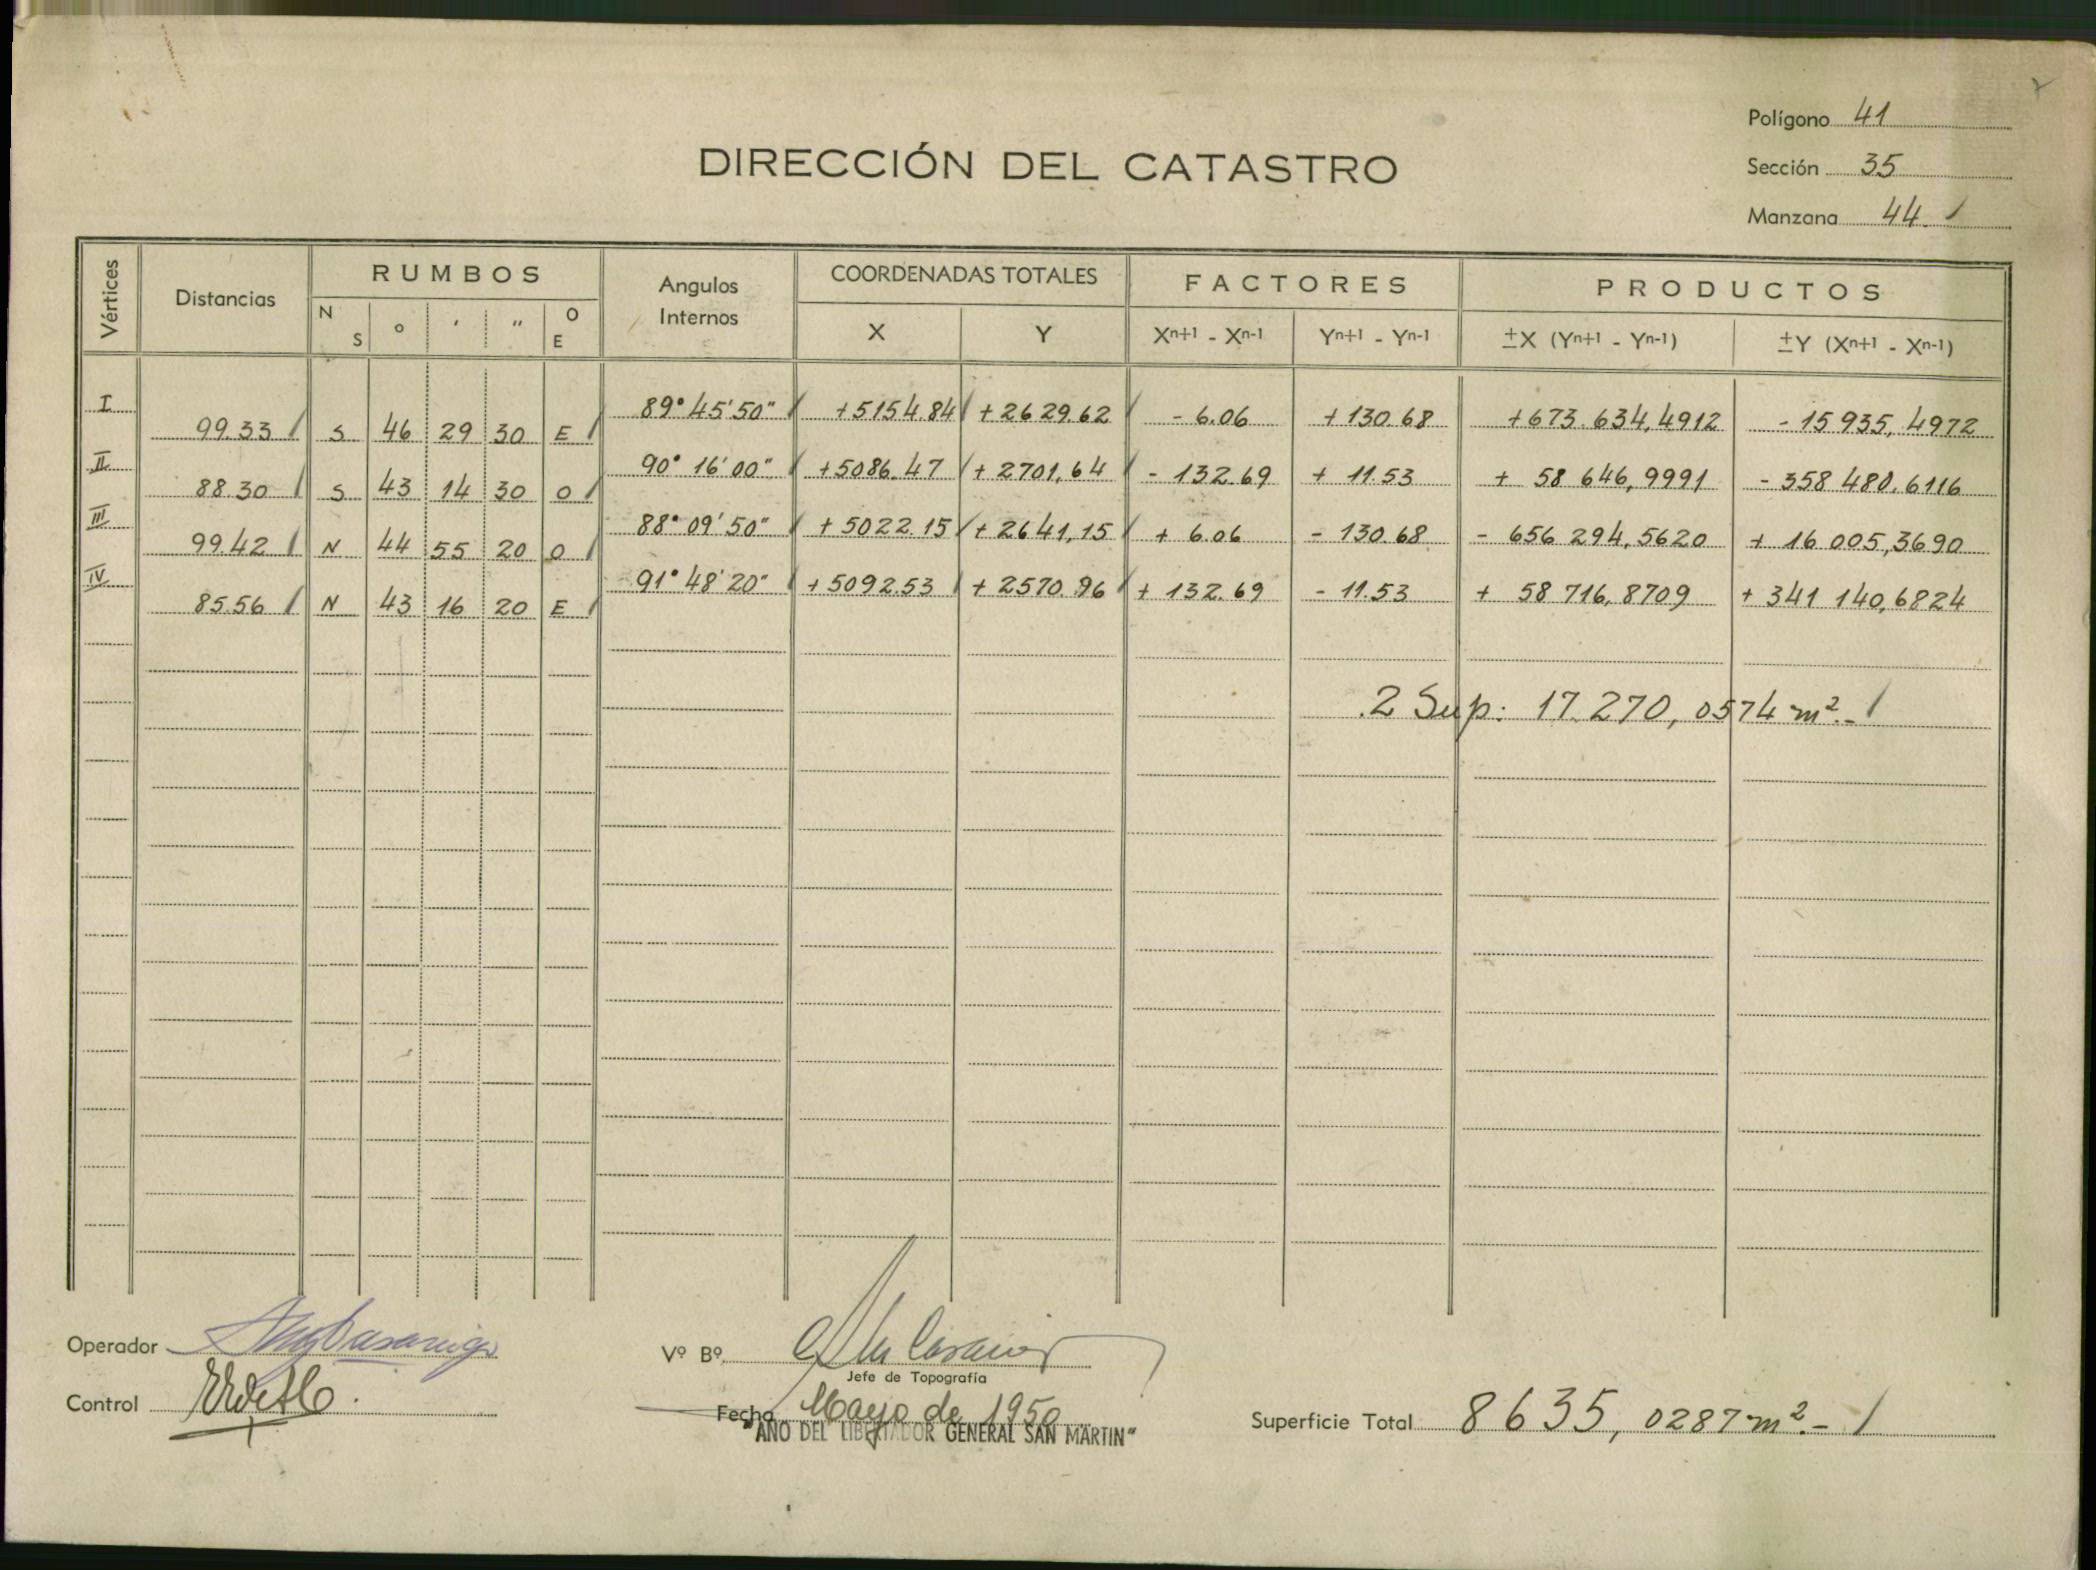 Polígono 41
Sección 35
Manzana 44
DIRECCIÓN DEL CATASTRO
Vértices Distancias RUMBOS Angulos Internos COORDENADAS TOTALES FACTORES PRODUCTOS
N S ° ' " O E X Y Xn+1 - Xn-1 Yn+1 - Yn-1 ±X (Yn+1 - Yn-1) ±Y (Xn+1 - Xn-1)
I 89° 45' 50" +5154.84 +2629.62 - 6.06 +130.68 +673.634,4912 - 15 935,4972
99.33 S 46 29 30 E
II 90° 16' 00" +5086.47 +2701,64 - 132.69 + 11.53 + 58 646,9991 - 358 480,6116
88.30 S 43 14 30 O
III 88° 09' 50" +5022.15 +2641,15 + 6.06 - 130.68 - 656 294,5620 + 16 005,3690
99.42 N 44 55 20 O
IV 91° 48' 20" +5092.53 +2570.96 + 132.69 - 11.53 + 58 716,8709 + 341 140,6824
85.56 N 43 16 20 E
2 Sup: 17.270,0574 m².-
Operador
Vº Bº
Jefe de Topografía
Control
Fecha Mayo de 1950
"AÑO DEL LIBERTADOR GENERAL SAN MARTIN"
Superficie Total 8635,0287 m².-